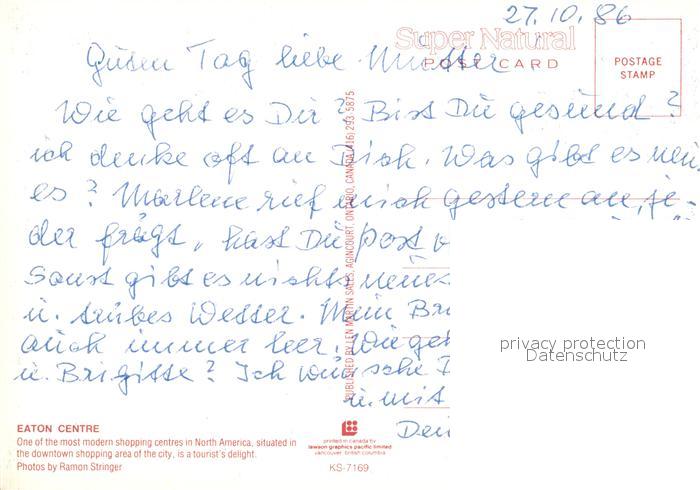 27.10.86
Super Natural
POSTCARD
POSTAGE
STAMP
Guten Tag liebe Mutter
Wie geht es Dir? Bist Du gesund?
ich denke oft an Dich. Was gibt es neu
es? Marlene rief mich gestern an, je-
der frägt, hast Du post
Sonst gibt es nichts neues
u. trübes Wetter. Mein Br
auch immer leer. Wie geh
u. Brigitte? Ich wünsche D
u. mit
Dein
PUBLISHED BY LEN MARTIN SALES, AGINCOURT, ONTARIO, CANADA (416) 293-5875
privacy protection
Datenschutz
EATON CENTRE
One of the most modern shopping centres in North America, situated in
the downtown shopping area of the city, is a tourist's delight.
Photos by Ramon Stringer
printed in canada by
lawson graphics pacific limited
vancouver, british columbia
KS-7169